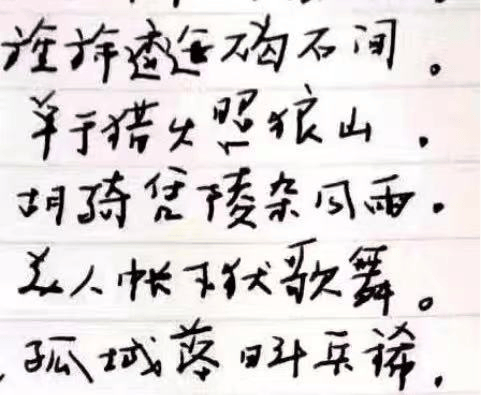 旌旆逶迤碣石间。
单于猎火照狼山.
胡骑凭陵杂风雨.
美人帐下犹歌舞。
孤城落日斗兵稀.